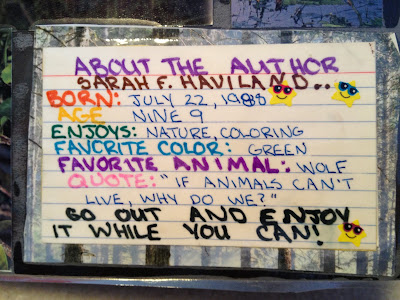 ABOUT THE AUTHOR
SARAH F. HAVILAND..
BORN: JULY 22, 1988
AGE NINE 9
ENJOYS: NATURE, COLORING
FAVORITE COLOR: GREEN
FAVORITE ANIMAL: WOLF
QUOTE: "IF ANIMALS CAN'T
LIVE, WHY DO WE?"
GO OUT AND ENJOY
IT WHILE YOU CAN!